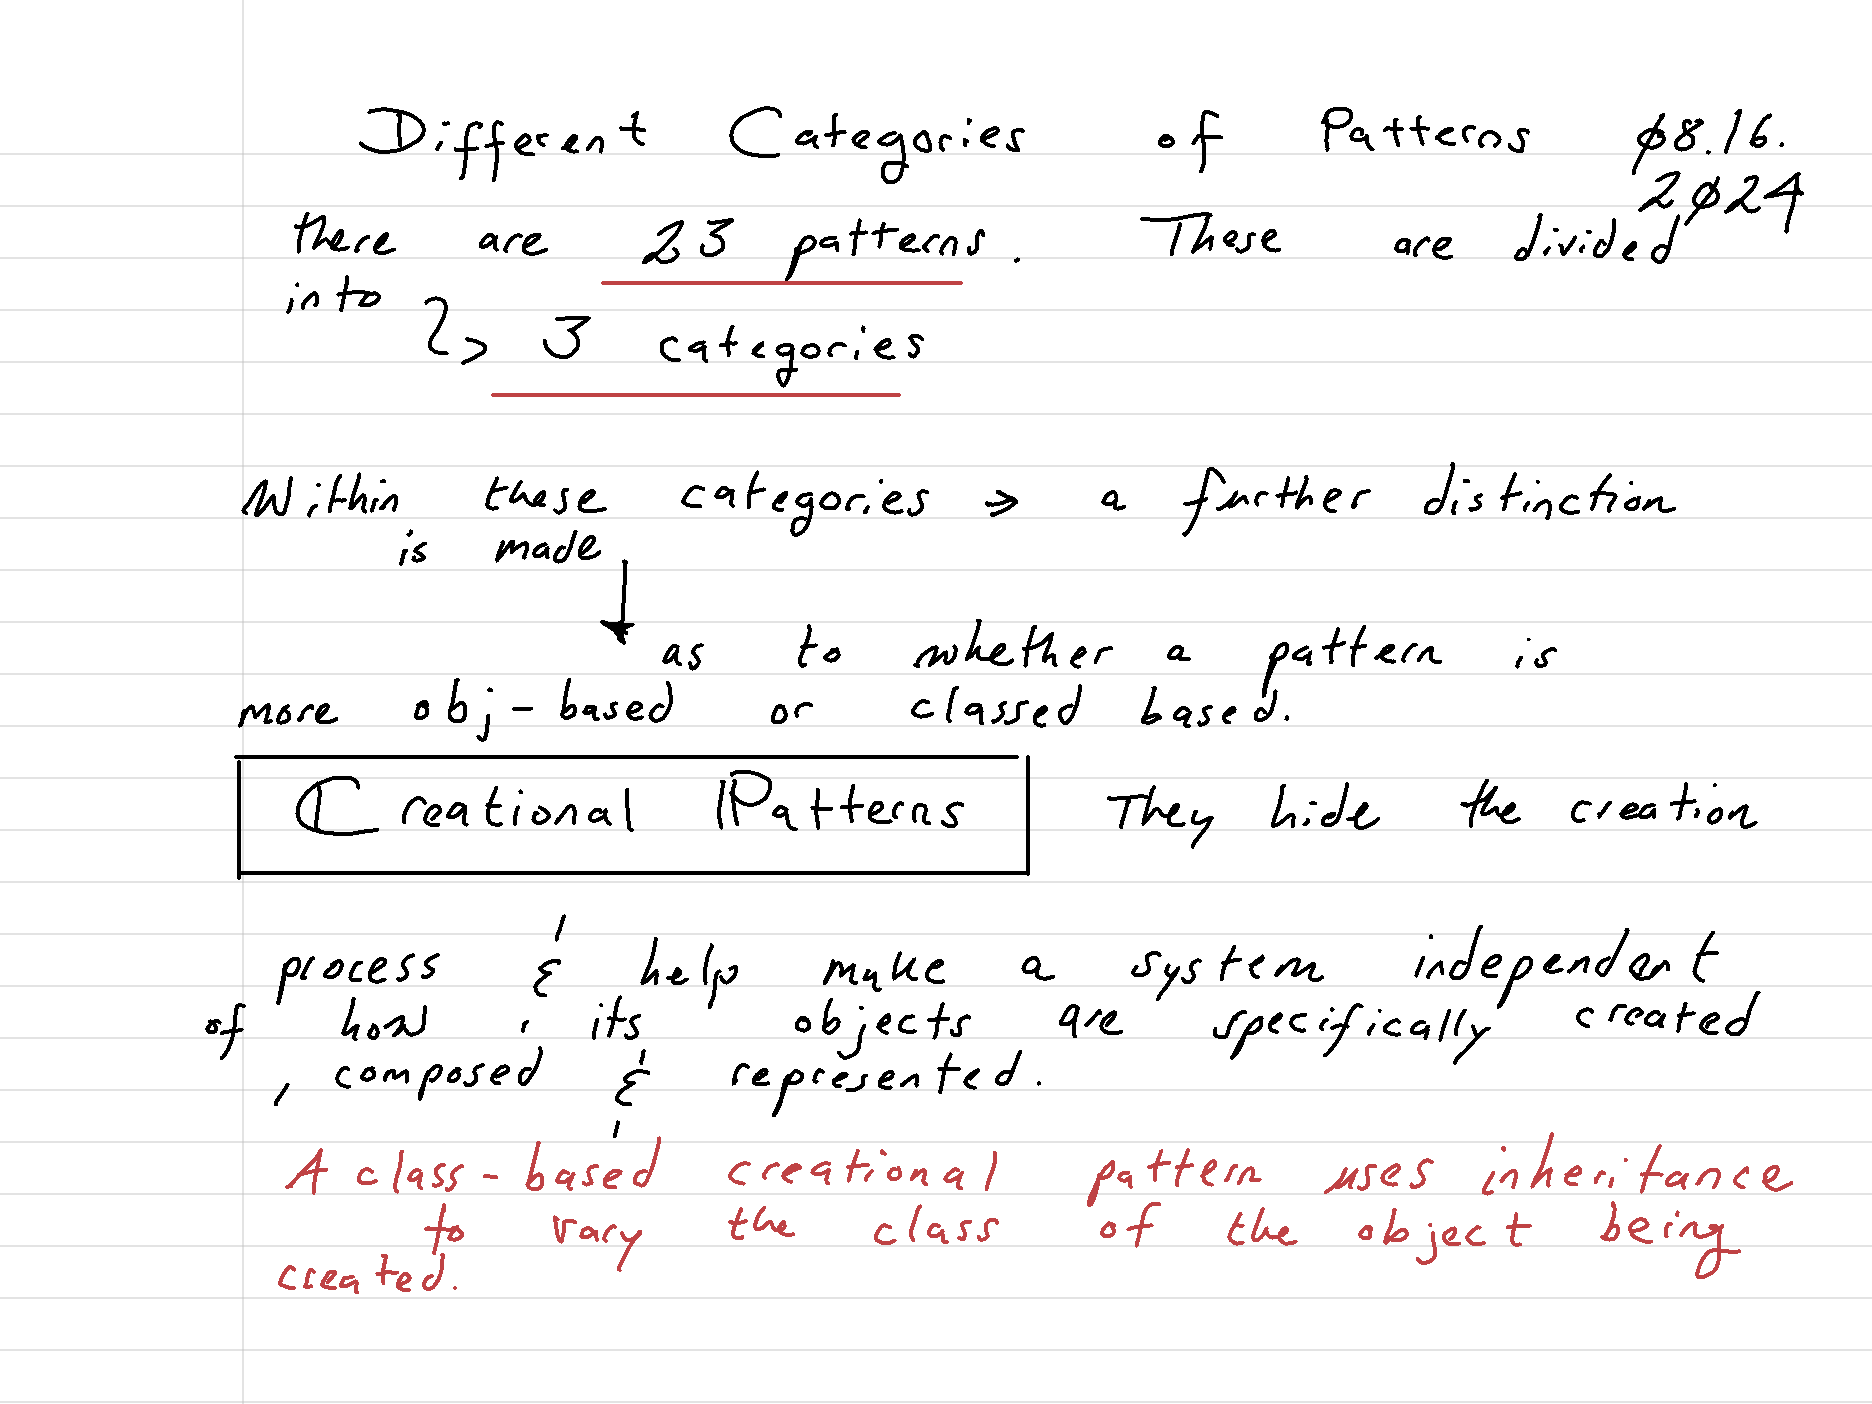 Different Categories of Patterns 08.16.
2024
there are 23 patterns. These are divided
into
3 categories
Within these categories → a further distinction
is made
as to whether a pattern is
more obj-based or classed based.
Creational Patterns They hide the creation
process & help make a system independent
of how its objects are specifically created
, composed & represented.
A class-based creational pattern uses inheritance
to vary the class of the object being
created.